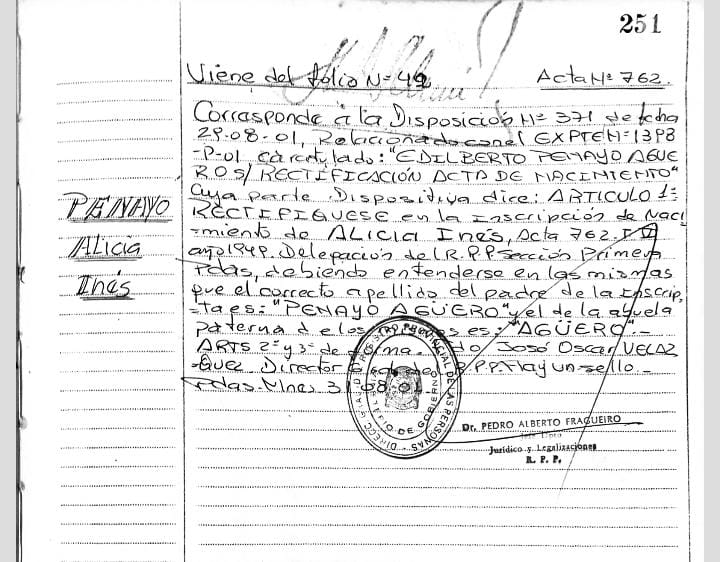 251
Viene del folio Nº 49
Acta Nº 762.
Corresponde à la Disposición Nº 371 de fecha
29-08-01, Relacionado con el EXPTE Nº 1398
-P-01, caratulado: "EDILBERTO PENAYO AGUE
RO S/ RECTIFICACIÓN ACTA DE NACIMIENTO"
Cuya parte Dispositiva dice: ARTICULO 1º
RECTIFIQUESE en la Inscripción de Naci
miento de ALICIA Inés, Acta 762. T
año 1949. Delegación del R.P.P Sección Primera
Pdas, debiendo entenderse en las mismas
que el correcto apellido del padre de la Inscrip
ta es: "PENAYO AGÜERO" y el de la abuela
paterna de los es: "AGÜERO"-
ARTS 2º y 3º de forma. José Oscar VELAZ
QUEZ Director R.P.P. Hay un sello-
Pdas. Mnes 3 08-01.
PENAYO
Alicia
Inés
DIRECC. REGISTRO PROVINCIAL DE LAS PERSONAS
DE GOBIERNO
Dr. PEDRO ALBERTO FRAGUEIRO
Jefe Dpto
Jurídico y Legalizaciones
R. P. P.